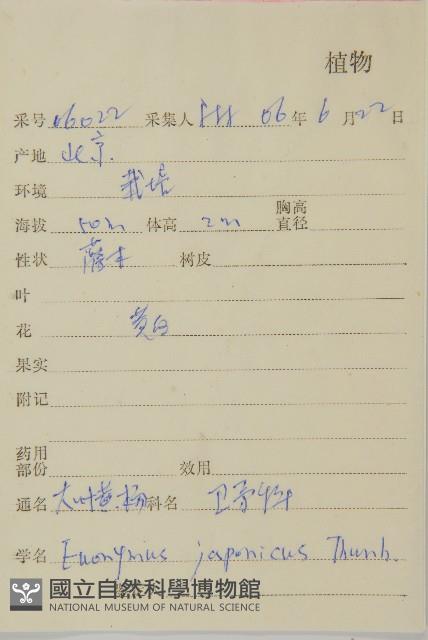 植物
采号 06022 采集人 06年6月22日
产地 北京.
环境 栽培
海拔 50m 体高 2m 胸高直径
性状 藤本 树皮
叶
花 黄白
果实
附记
药用部份 效用
通名 大叶黄杨 科名 卫矛科
学名 Euonymus japonicus Thunb.
國立自然科學博物館
NATIONAL MUSEUM OF NATURAL SCIENCE